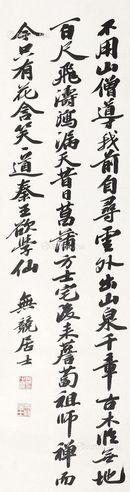 不用山僧導我前自尋雲外出山泉千章古木臨无地
百尺飛濤瀉漏天昔日菖蒲方士宅後來薝蔔祖師禪而
今只有花含笑〻道秦王欲學仙 無競居士